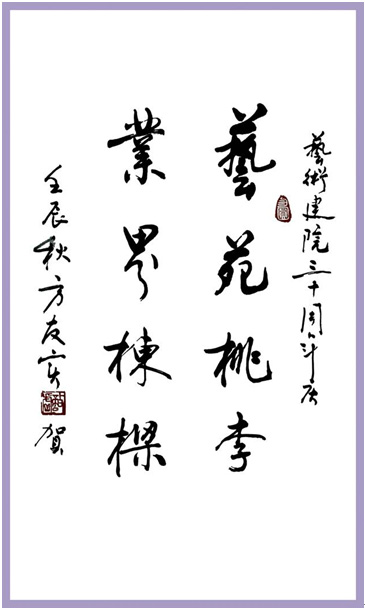 藝術建院三十周年庆
藝苑桃李
業界棟樑
壬辰秋方友賀